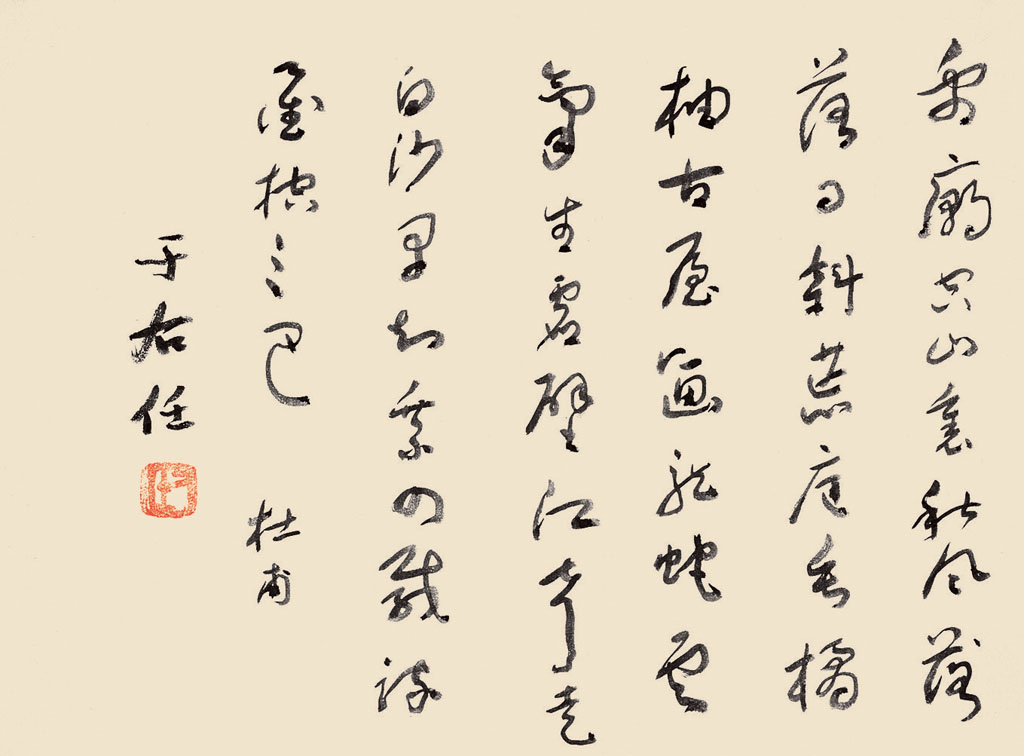 禹廟空山裏秋風落
落日斜荒庭垂橘
柚古屋畫龍蛇雲
氣生虛壁江聲走
白沙早知乘四載疏
鑿控三巴 杜甫
于右任